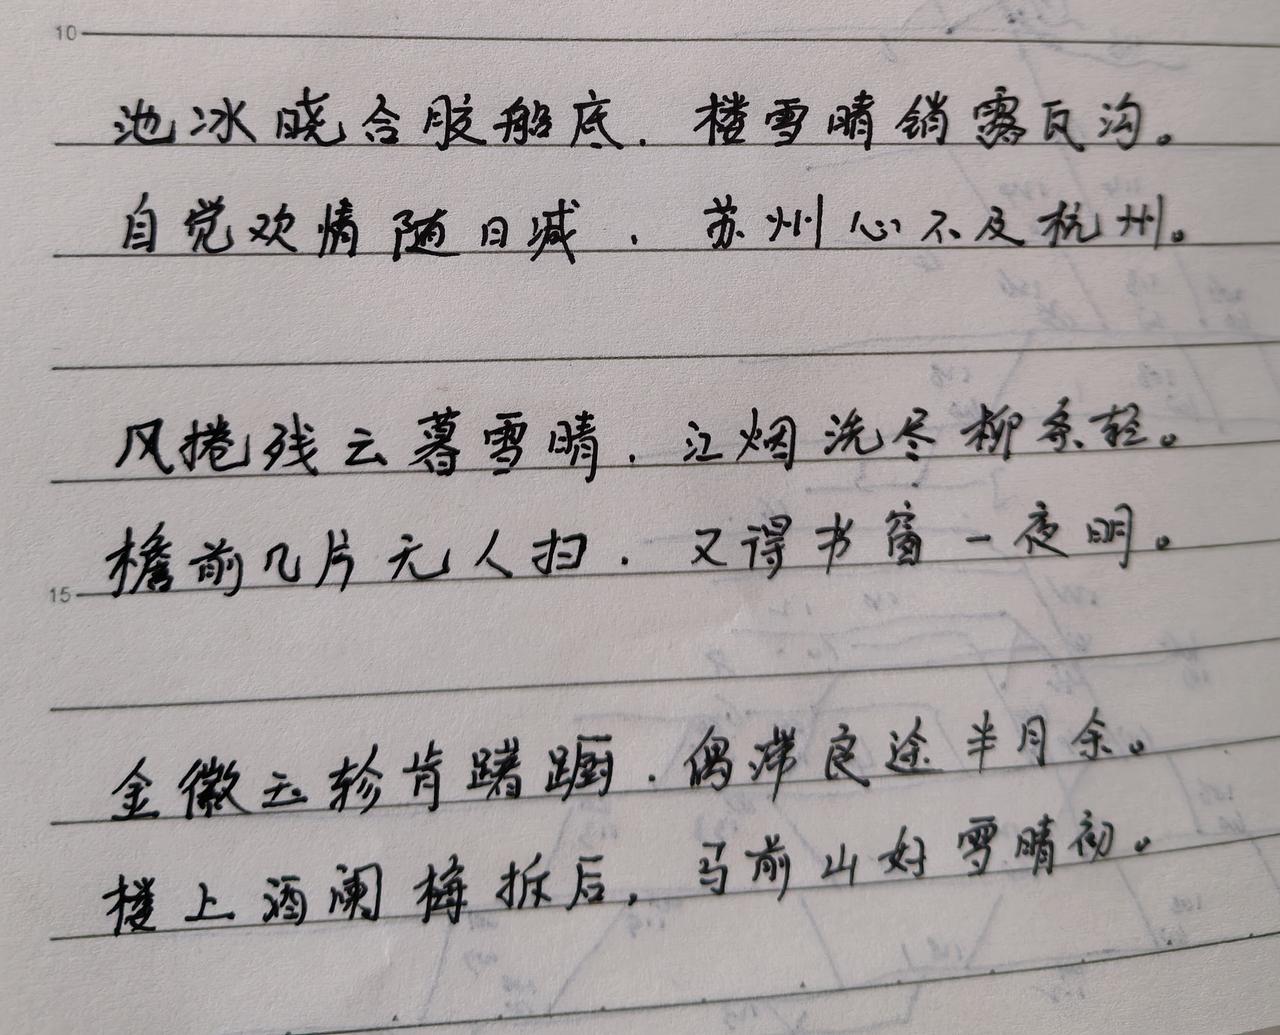 10
池冰晓合胶船底，楼雪晴销露瓦沟。
自觉欢情随日减，苏州心不及杭州。
风捲残云暮雪晴，江烟洗尽柳条轻。
檐前几片无人扫，又得书窗一夜明。
15
金徽玉轸肯踌蹰，偶滞良途半月余。
楼上酒阑梅拆后，马前山好雪晴初。